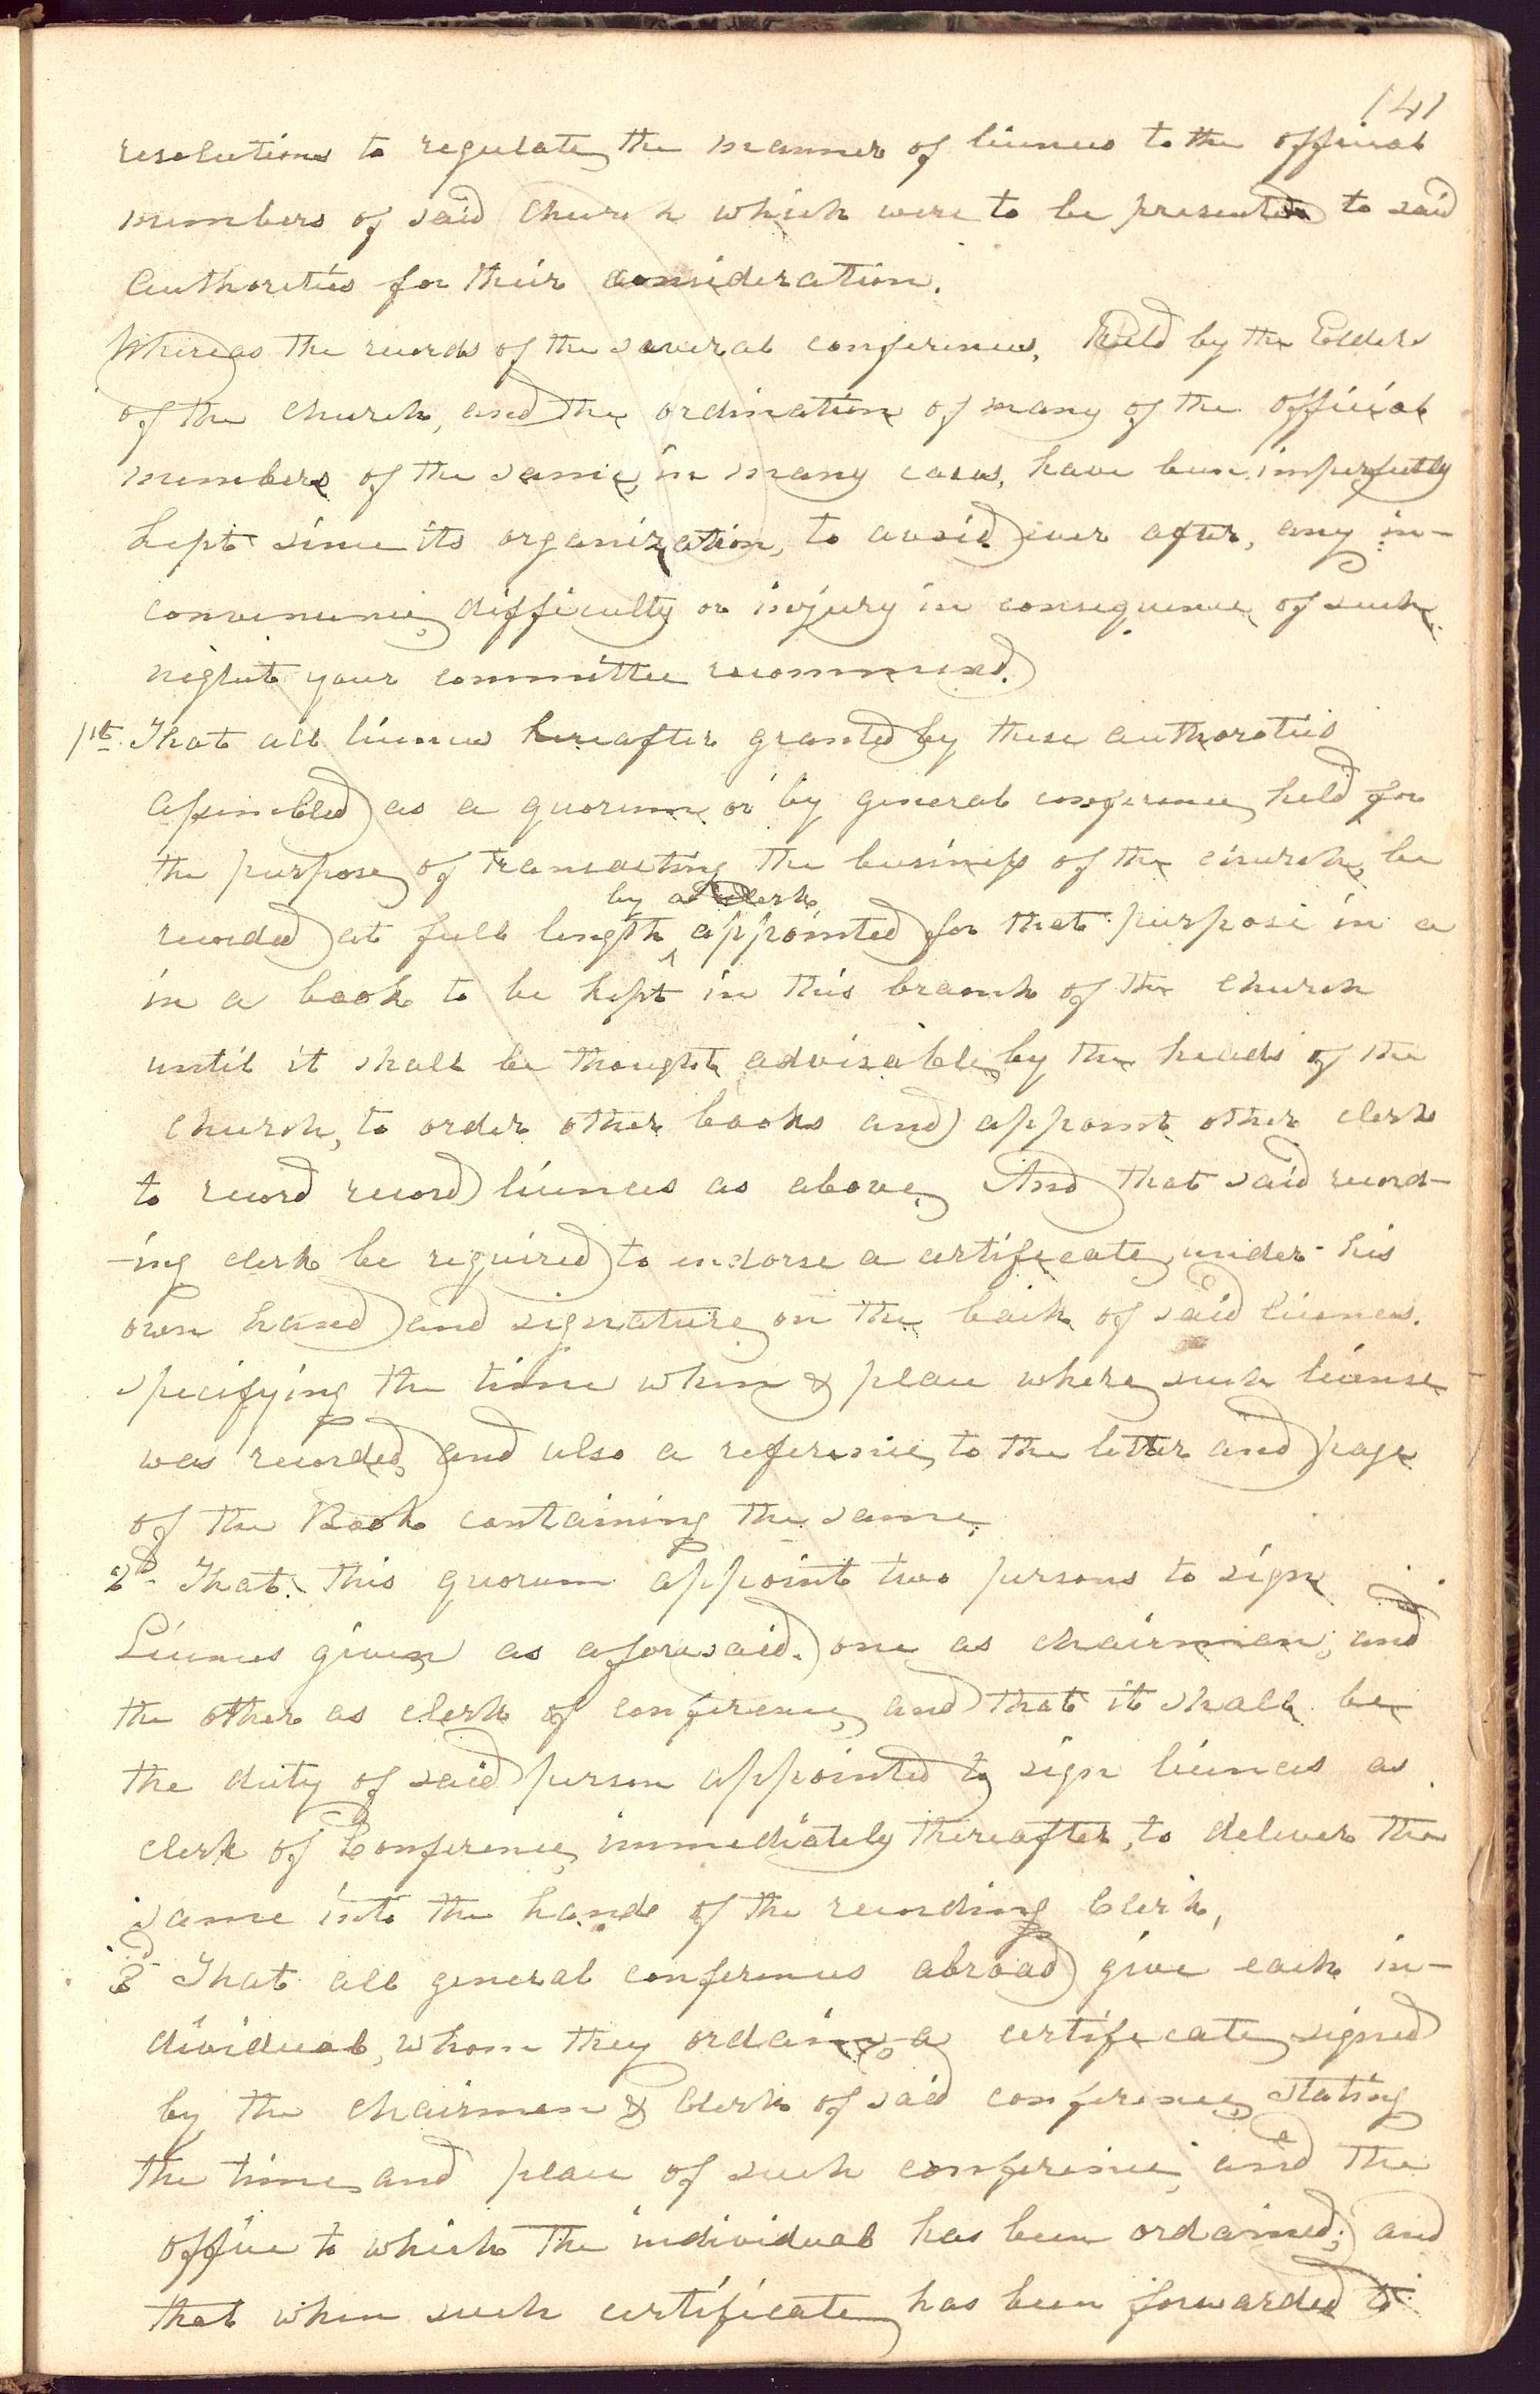 141
resolutions to regulate the manner of licences to the official
members of said Church which were to be presented to said
Authorities for their consideration.
Whereas the records of the several conferences, held by the Elders
of the church, and the ordination of many of the official
members of the same, in many cases, have been imperfectly
kept since its organization, to avoid ever after, any in-
convenience, difficulty or injury in consequence of such
neglect your committee recommend.
1st. That all licences hereafter granted by these authoraties
assembled as a quorum or by general conference held for
the purpose of transacting the business of the church, be
by a clerk
recorded at full length ^ appointed for that purpose in a
in a book to be kept in this branch of the church
until it shall be thought advisable by the heads of the
church, to order other books and appoint other clerk
to record record licences as above. And that said record-
-ing clerk be required to endorse a certificate under his
own hand and signature on the back of said licences.
specifying the time when & place where such license
was recorded, and also a reference to the letter and page
of the Book containing the same.
2d- That this quorum appoint two persons to sign
Licences given as aforesaid. one as chairman, and
the other as clerk of conference, and that it shall be
the duty of said person appointed to sign licences as
clerk of Conference, immediately thereafter, to deliver the
same into the hands of the recording Clerk,
3d- That all general conferences abroad give each in-
dividual, whom they ordain, a certificate signed
by the chairman & Clerk of said conference, stating
the time and place of such conference, and the
office to which the individual has been ordained; and
that when such certificate has been forwarded to